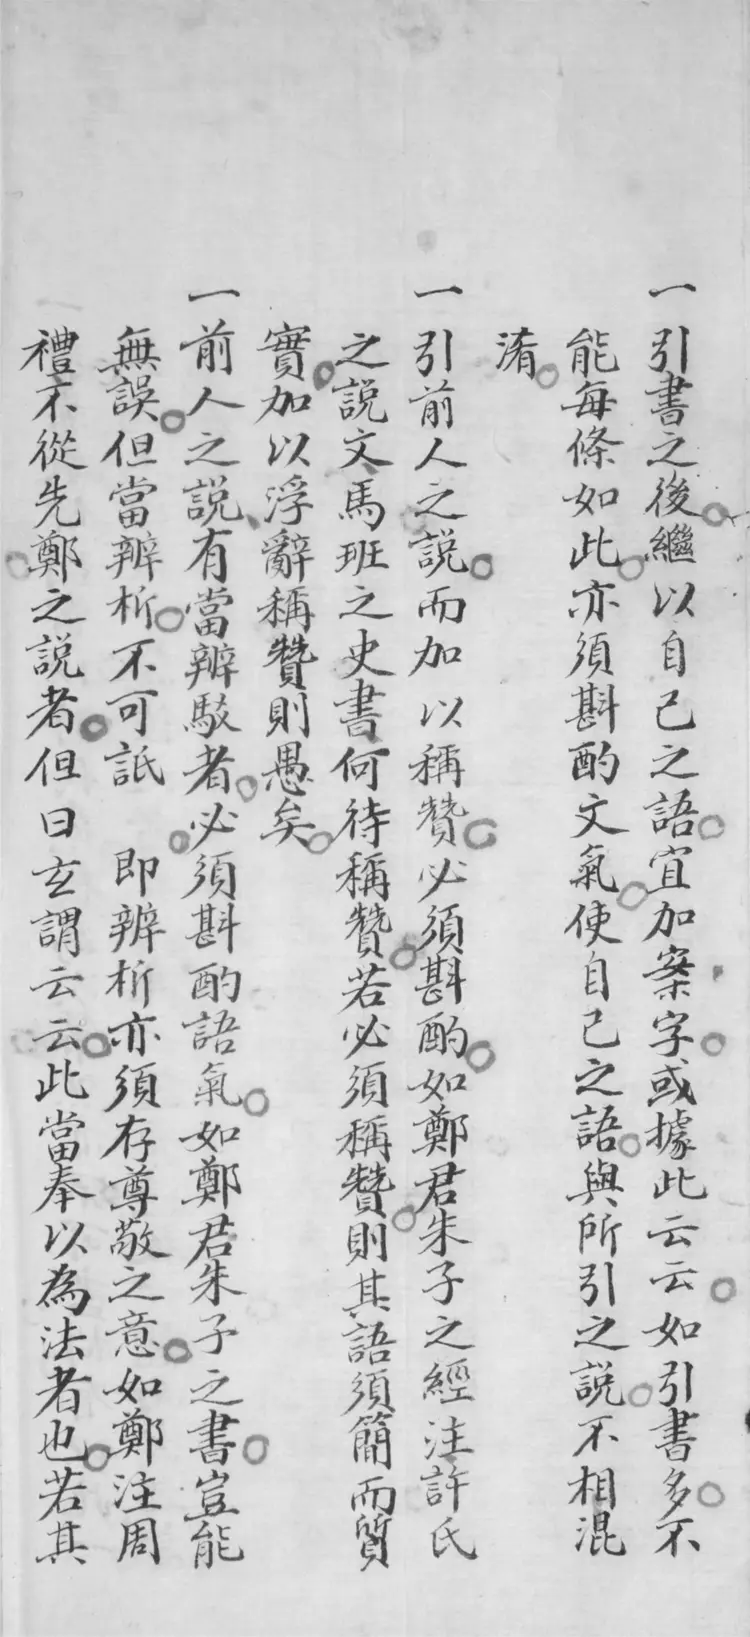 一引書之後繼以自己之語宜加案字或據此云云如引書多不
能每條如此亦須斟酌文氣使自己之語與所引之說不相混
淆
一引前人之說而加以稱贊必須斟酌如鄭君朱子之經注許氏
之說文馬班之史書何待稱贊若必須稱贊則其語須簡而質
實加以浮辭稱贊則愚矣
一前人之說有當辨駁者必須斟酌語氣如鄭君朱子之書豈能
無誤但當辨析不可詆 即辨析亦須存尊敬之意如鄭注周
禮不從先鄭之說者但曰玄謂云云此當奉以為法者也若其